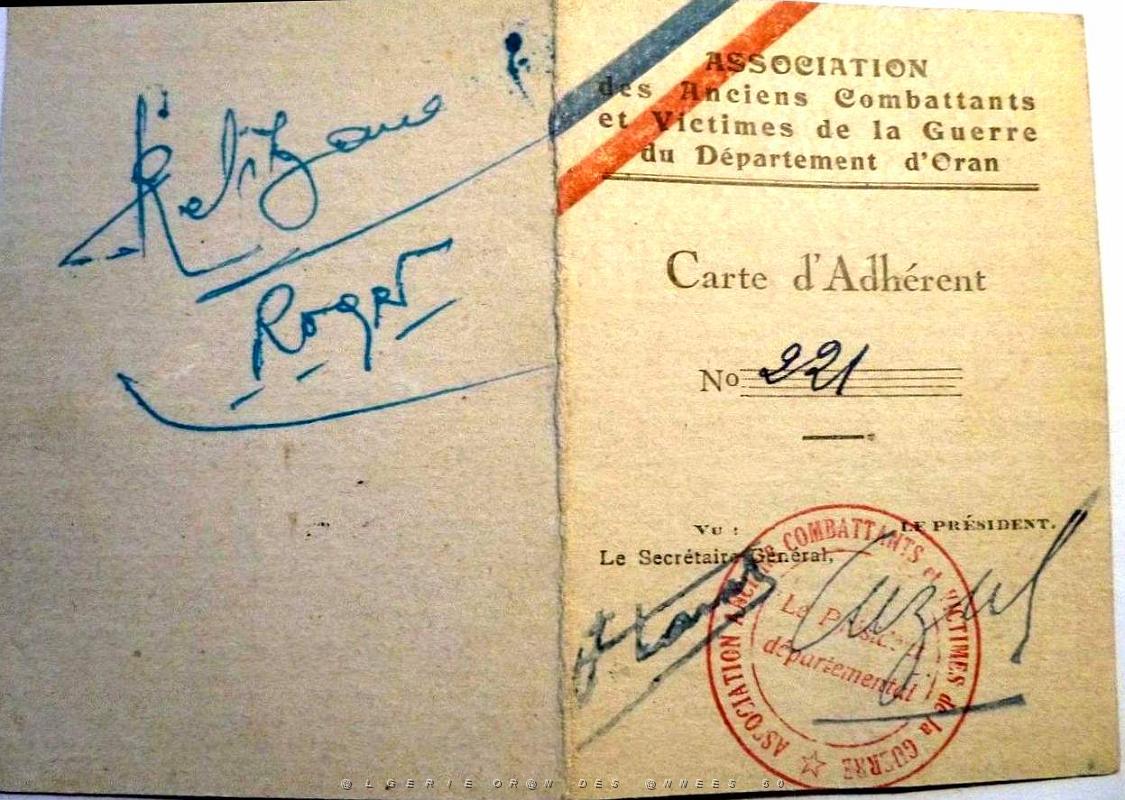 Relizane
Roger
ASSOCIATION
des Anciens Combattants
et Victimes de la Guerre
du Département d'Oran
Carte d'Adhérent
No 221
VU :
LE PRÉSIDENT.
Le Secrétaire Général,
ASSOCIATION ANCIENS COMBATTANTS et VICTIMES de la GUERRE
Le Président
départemental
@LGERIE OR@N DES @NNEES 50